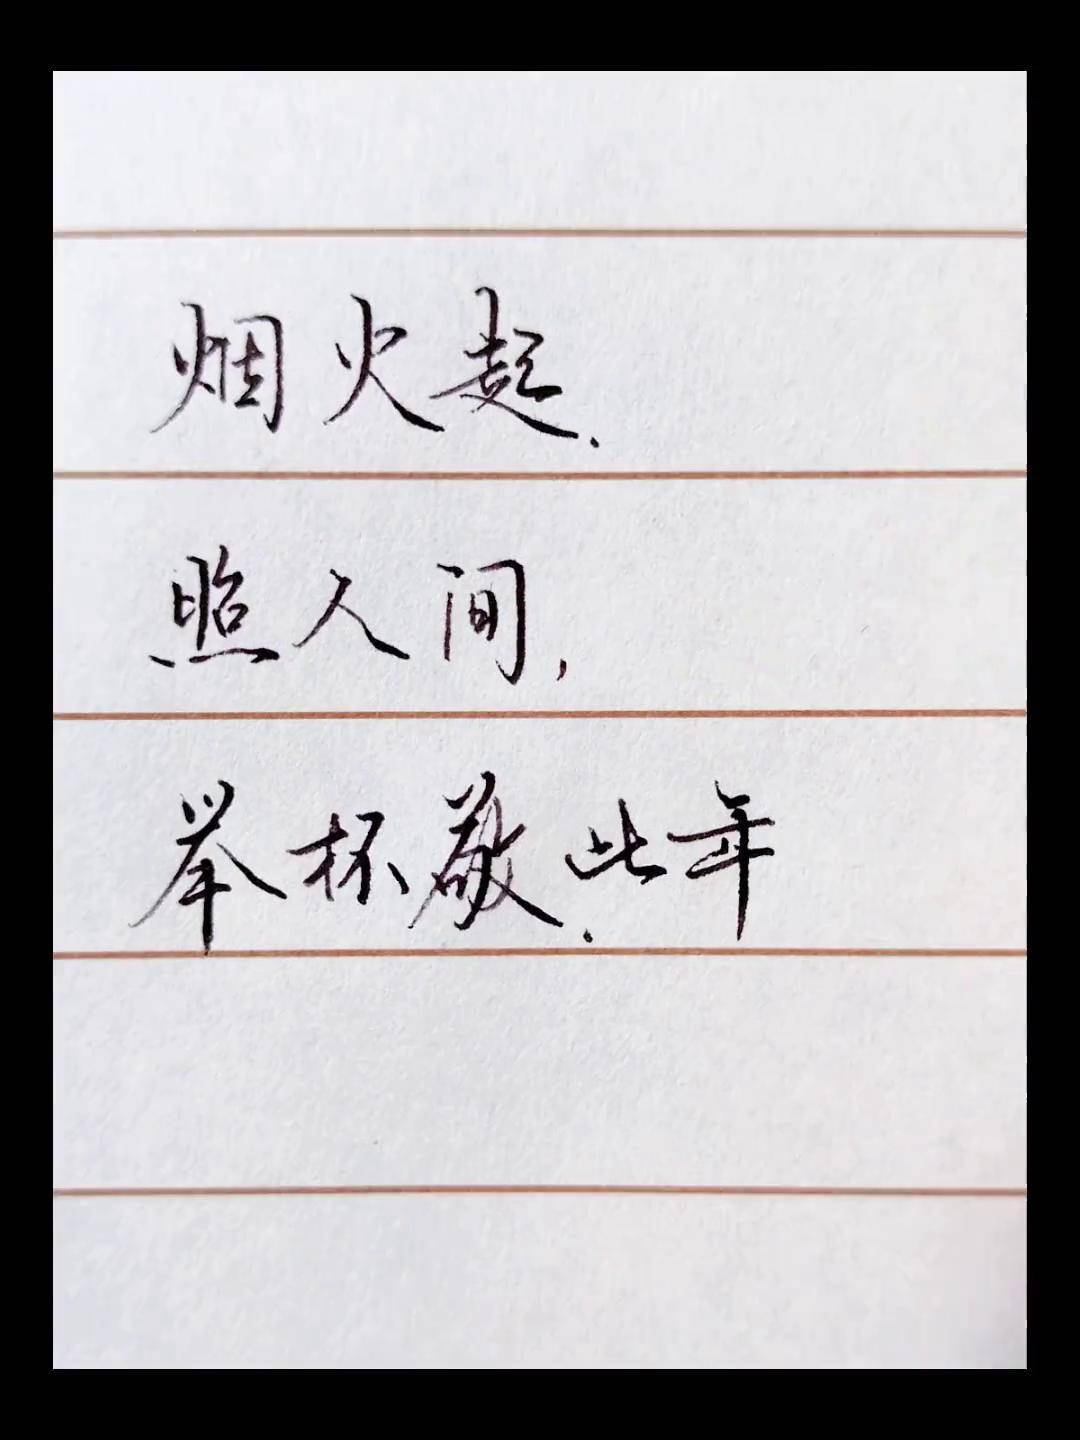 烟火起.
照人间,
举杯敬.此年